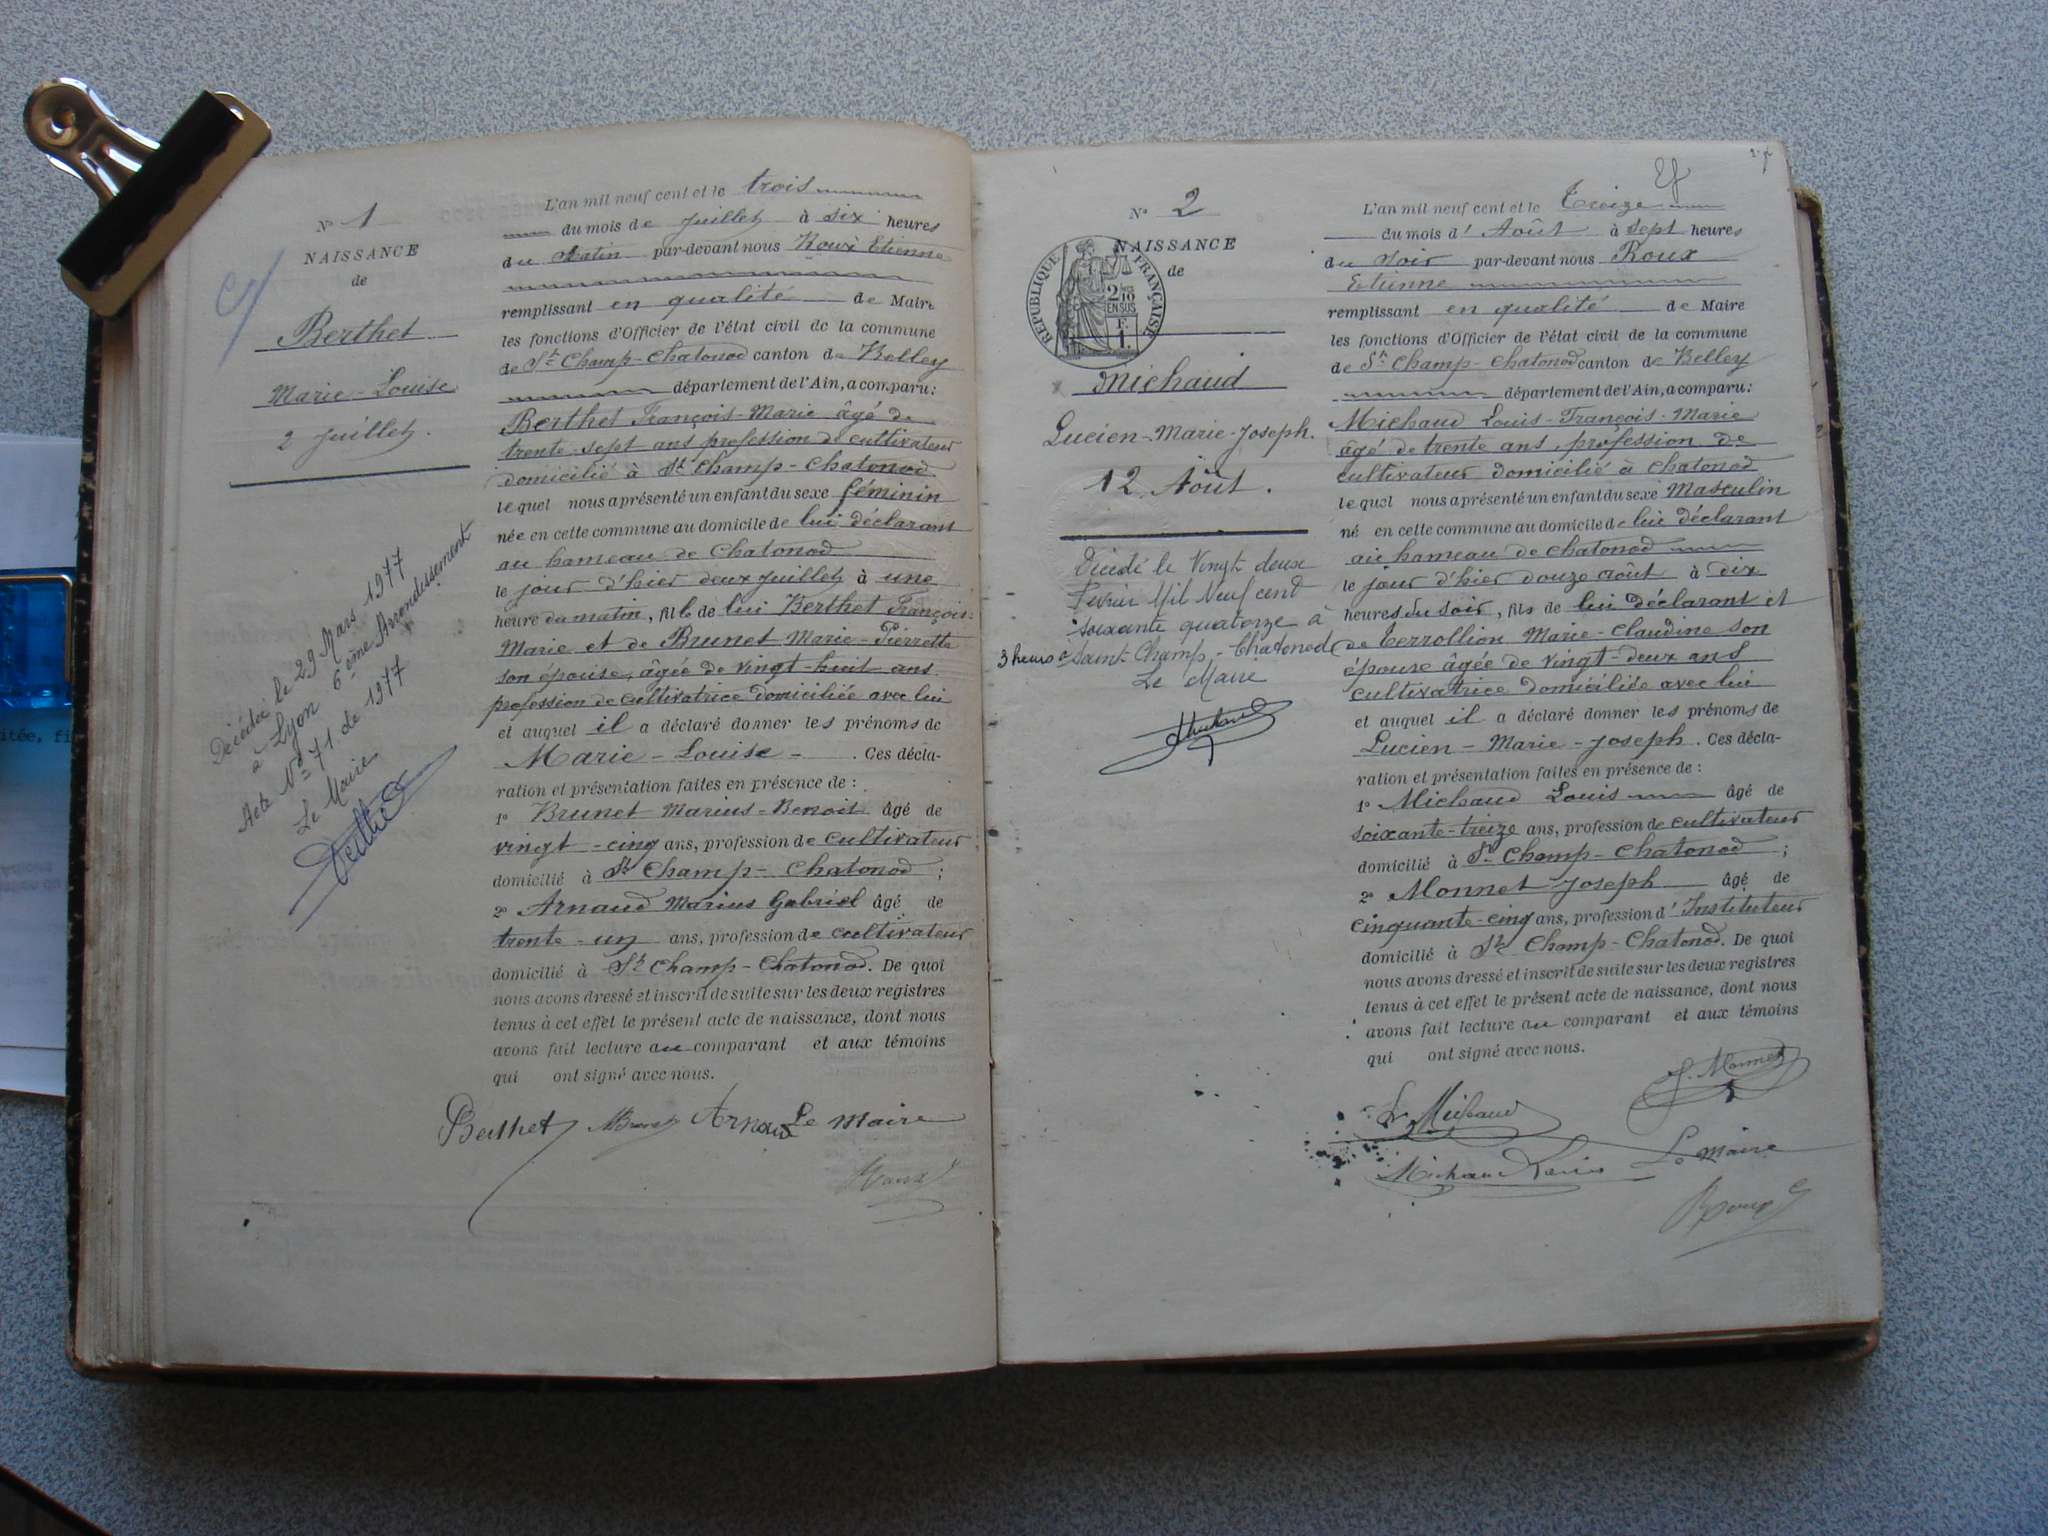 Nº 1
NAISSANCE
de
Berthet
Marie-Louise
2 Juillet.
Décédée le 29 Mars 1977
à Lyon 6ème Arrondissement
Acte Nº 71 de 1977
Le Maire
L'an mil neuf cent et le trois
du mois de Juillet à six heures
du Matin par-devant nous Roux Etienne
remplissant en qualité de Maire
les fonctions d'Officier de l'état civil de la commune
de St Champ-Chatonod canton de Belley
département de l'Ain, a comparu:
Berthet François-Marie âgé de
trente-sept ans profession de cultivateur
domicilié à St Champ-Chatonod
lequel nous a présenté un enfant du sexe féminin
née en cette commune au domicile de lui déclarant
au hameau de Chatonod
le jour d'hier deux Juillet à une
heure du matin, fille de lui Berthet François-
Marie et de Brunet Marie-Pierrette
son épouse, âgée de vingt-huit ans
profession de cultivatrice domiciliée avec lui
et auquel il a déclaré donner les prénoms de
Marie-Louise - . Ces décla-
ration et présentation faites en présence de :
1º Brunet Marius-Benoit âgé de
vingt-cinq ans, profession de cultivateur
domicilié à St Champ-Chatonod ;
2º Arnaud Marius Gabriel âgé de
trente-un ans, profession de cultivateur
domicilié à St Champ-Chatonod. De quoi
nous avons dressé et inscrit de suite sur les deux registres
tenus à cet effet le présent acte de naissance, dont nous
avons fait lecture au comparant et aux témoins
qui ont signé avec nous.
Berthet MBrunet Arnaud Le Maire
Roux
Nº 2
NAISSANCE
de
RÉPUBLIQUE FRANÇAISE
2/10 EN SUS
F.
1.
Michaud
Lucien-Marie-Joseph.
12 Août.
Décédé le Vingt deux
Février Mil Neuf cent
soixante quatorze à
3 heures Saint-Champ-Chatonod
Le Maire
L'an mil neuf cent et le Treize
du mois d'Août à sept heures
du soir par-devant nous Roux
Etienne
remplissant en qualité de Maire
les fonctions d'Officier de l'état civil de la commune
de St Champ-Chatonod canton de Belley
département de l'Ain, a comparu:
Michaud Louis-François-Marie
âgé de trente ans, profession de
cultivateur domicilié à Chatonod
lequel nous a présenté un enfant du sexe Masculin
né en cette commune au domicile de lui déclarant
au hameau de Chatonod
le jour d'hier douze Août à dix
heures du soir, fils de lui déclarant et
de Terrollion Marie-Claudine son
épouse âgée de vingt-deux ans
cultivatrice domiciliée avec lui
et auquel il a déclaré donner les prénoms de
Lucien-Marie-Joseph. Ces décla-
ration et présentation faites en présence de :
1º Michaud Louis âgé de
soixante-treize ans, profession de cultivateur
domicilié à St Champ-Chatonod ;
2º Monnet Joseph âgé de
cinquante-cinq ans, profession d'Instituteur
domicilié à St Champ-Chatonod. De quoi
nous avons dressé et inscrit de suite sur les deux registres
tenus à cet effet le présent acte de naissance, dont nous
avons fait lecture au comparant et aux témoins
qui ont signé avec nous.
J. Monnet
Lr Michaud
Michaud Louis Le Maire
Roux